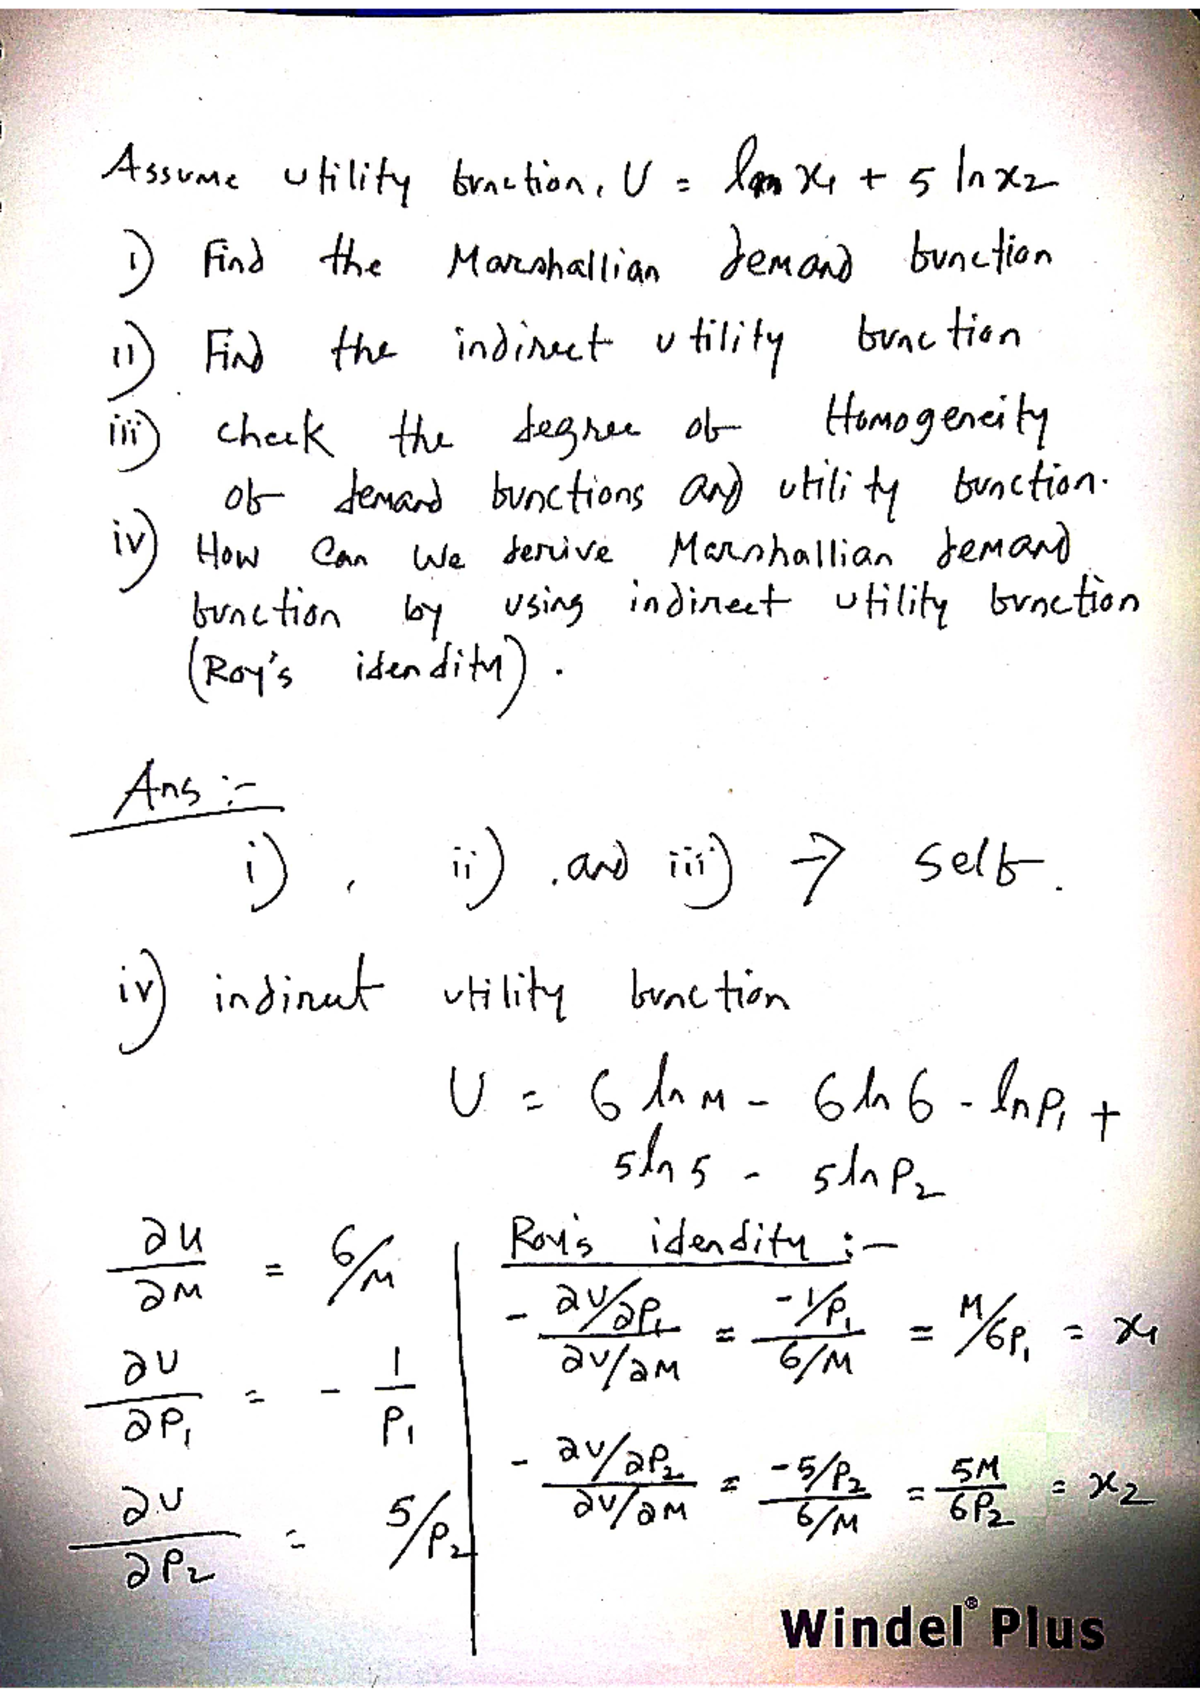 Assume utility function, U = ln x1 + 5 ln x2
i) Find the Marshallian demand function
ii) Find the indirect utility function
iii) check the degree of Homogeneity
of demand functions and utility function.
iv) How Can We derive Marshallian demand
function by using indirect utility function
(Roy's idendity).
Ans :-
i), ii), and iii) → self.
iv) indirect utility function
U = 6 ln M - 6 ln 6 - ln P1 +
5 ln 5 - 5 ln P2
∂u/∂M = 6/M
∂U/∂P1 = - 1/P1
∂U/∂P2 = 5/P2
Roy's idendity :-
- (∂U/∂P1)/(∂U/∂M) = (-1/P1)/(6/M) = M/6P1 = x1
- (∂U/∂P2)/(∂U/∂M) = (-5/P2)/(6/M) = 5M/6P2 = x2
Windel® Plus